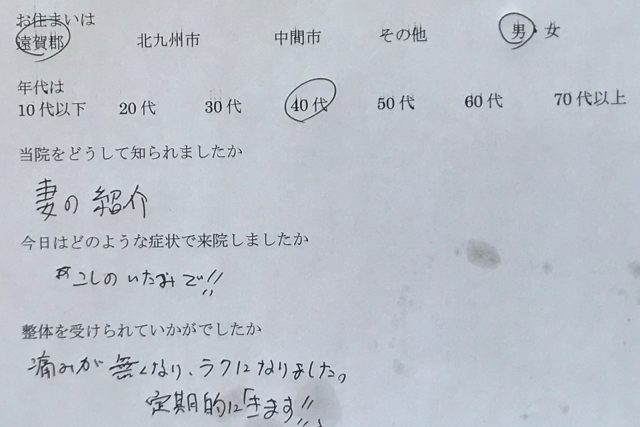 お住まいは
遠賀郡 北九州市 中間市 その他 男・女
年代は
10代以下 20代 30代 40代 50代 60代 70代以上
当院をどうして知られましたか
妻の紹介
今日はどのような症状で来院しましたか
こしのいたみで!!
整体を受けられていかがでしたか
痛みが無くなり、ラクになりました。
定期的にきます!!